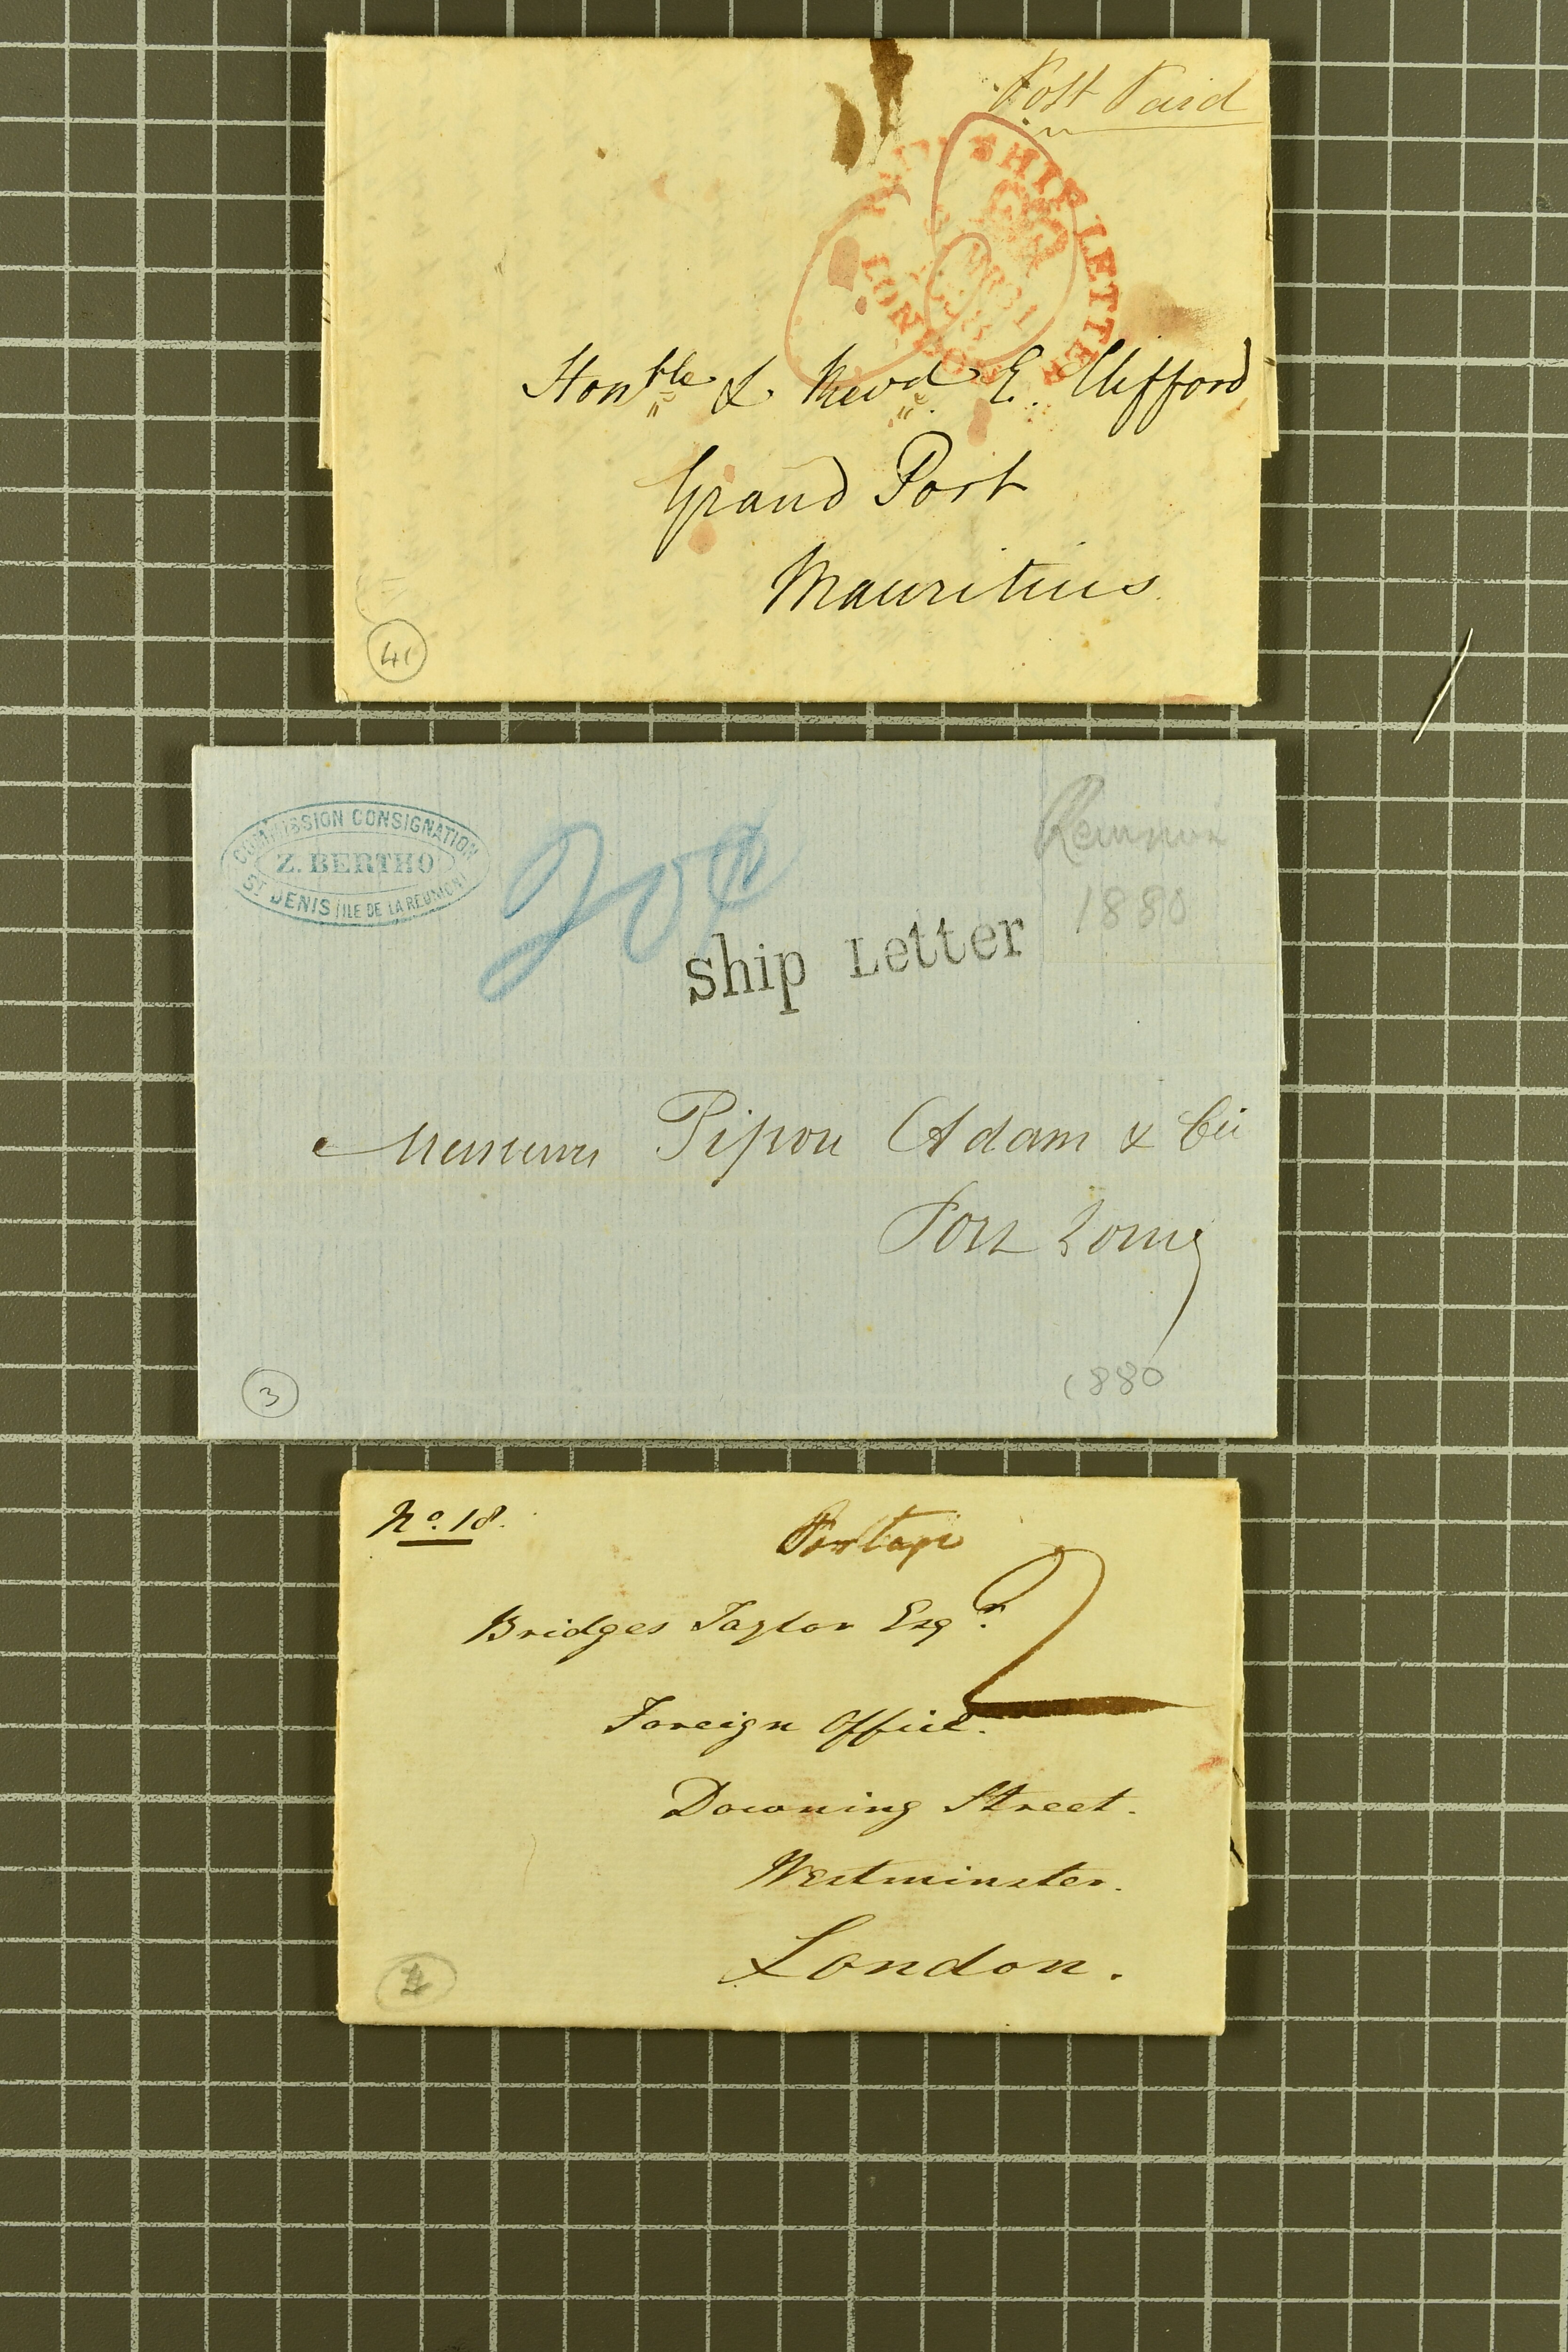 Post Paid
SHIP LETTER
LONDON
Honble & Revd E. Clifford
Grand Port
Mauritius
41
COMMISSION CONSIGNATION
Z. BERTHO
ST DENIS (ILE DE LA RÉUNION)
20c
Reunion
1880
Ship Letter
Messieurs Pipon Adam & Cie
Port Louis
3
1880
No. 18.
2
Bridges Taylor Esqr.
Foreign Office.
Downing Street.
Westminster.
London.